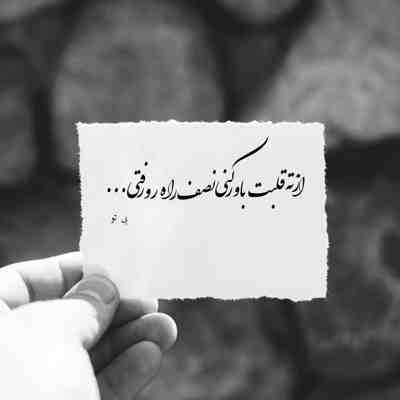 از ته قلبت باور کنی نصف راه رو رفتی...
بی تو